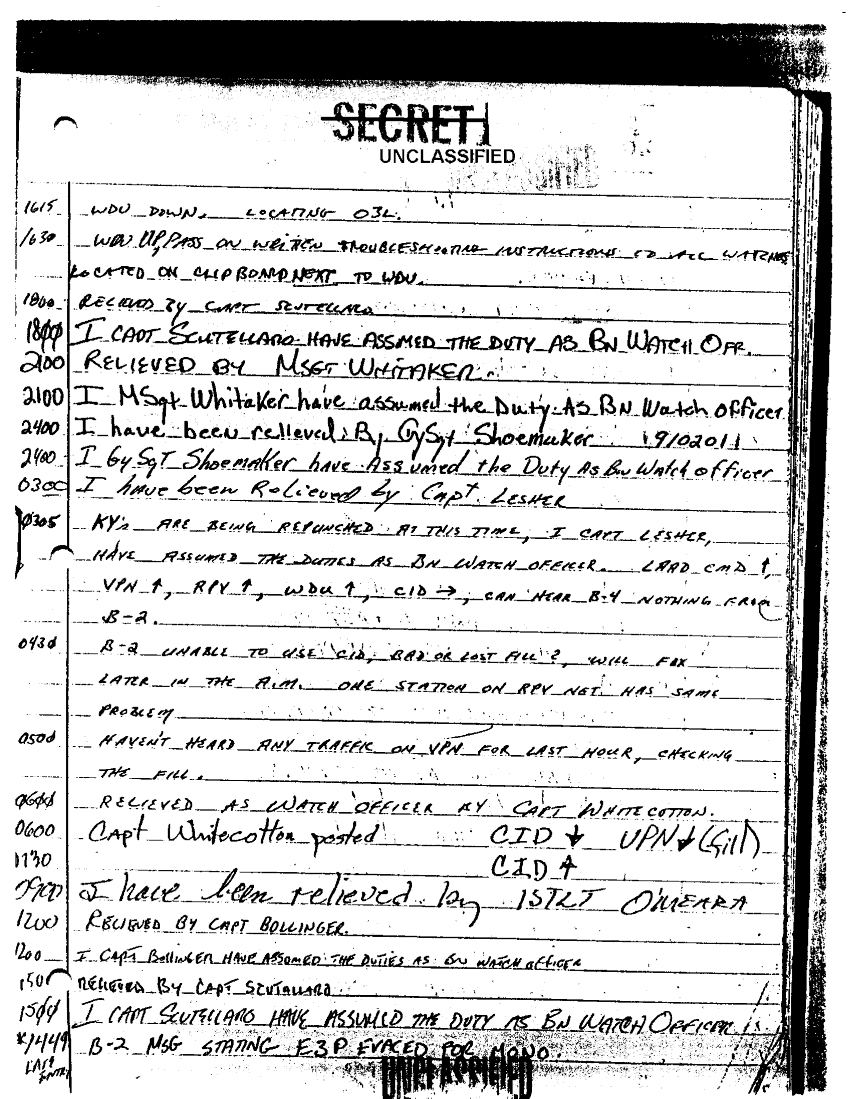 SECRET
UNCLASSIFIED
1615 WDU DOWN. LOCATING 03L.
1630 WDU UP, PASS ON WRITTEN TROUBLESHOOTING INSTRUCTIONS TO ALL WATCHES
LOCATED ON CLIP BOARD NEXT TO WDU.
1800 RELIEVED BY CAPT SCUTELLARO
1800 I CAPT SCUTELLARO HAVE ASSMED THE DUTY AS BN WATCH OFR.
2100 RELIEVED BY MSGT WHITAKER.
2100 I MSgt Whitaker have assumed the Duty AS BN Watch officer
2400 I have been relieved By GySgt Shoemaker 1902011
2400 I GySgT Shoemaker have Assumed the Duty As Bn Watch officer
0300 I have been Relieved by Capt. LESHER
0305 KY's ARE BEING REPUNCHED AT THIS TIME, I CAPT LESHER,
HAVE ASSUMED THE DUTIES AS BN WATCH OFFICER. LAAD CMD ↑,
VPN ↑, RPV ↑, WDU ↑, CID →, CAN HEAR B-4 NOTHING FROM
B-2.
0430 B-2 UNABLE TO USE CID, BAD OR LOST FILL?, WILL FIX
LATER IN THE A.M. ONE STATION ON RPV NET HAS SAME
PROBLEM
0500 HAVEN'T HEARD ANY TRAFFIC ON VPN FOR LAST HOUR, CHECKING
THE FILL.
0600 RELIEVED AS WATCH OFFICER BY CAPT WHITECOTTON.
0600 Capt Whitecotton posted CID ↓ VPN ↓ (fill)
1130 CID ↑
0900 I have been relieved by 1STLT O'MEARA
1200 RELIEVED BY CAPT BOLLINGER.
1200 I CAPT BOLLINGER HAVE ASSUMED THE DUTIES AS BN WATCH OFFICER
1500 RELIEVED BY CAPT SCUTALLARO
1500 I CAPT SCUTELLARO HAVE ASSUMED THE DUTY AS BN WATCH OFFICER
*1449 B-2 MSG STATING E3P EVACED FOR MONO.
LATE
ENTRY
UNCLASSIFIED